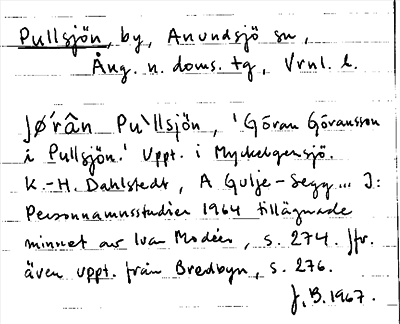 Pullsjön, by, Anundsjö sn,
Ång. n. doms. tg, Vrnl. l.
Jø´rân Pu`llsjön, 'Göran Göransson
i Pullsjön.' Uppt. i Myckelgensjö.
K.-H. Dahlstedt, A Gulje-Segg... I:
Personnamnsstudier 1964 tillägnade
minnet av Ivar Modéer, s. 274. Jfr.
även uppt. från Bredbyn, s. 276.
J. B. 1967.